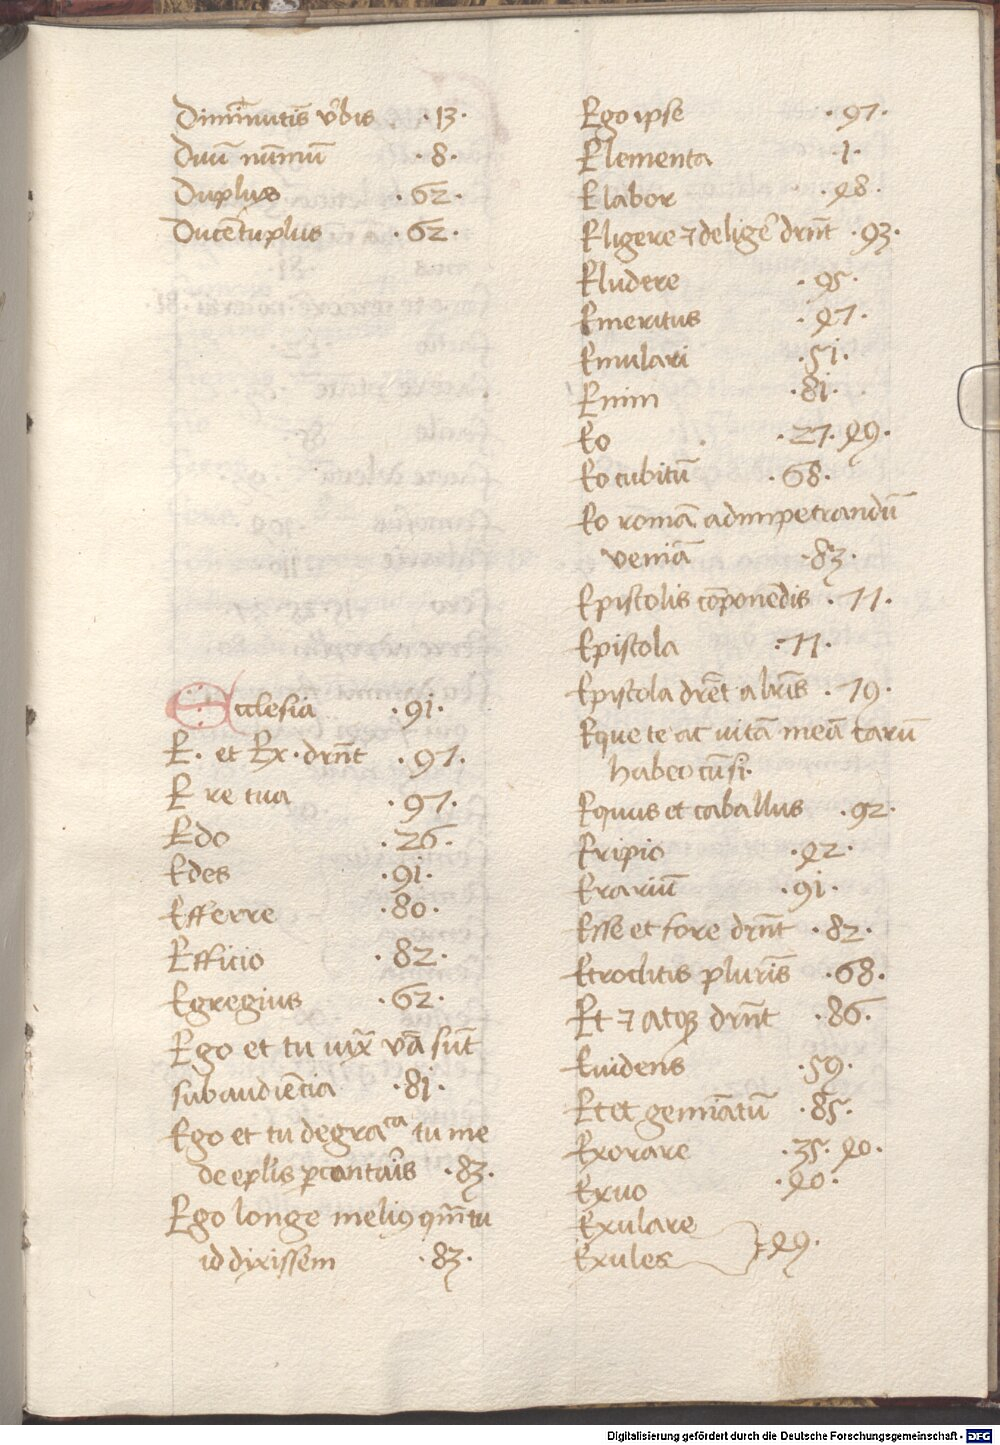 Diminutis v̉bis · 13 ·
Duū nūmiū · 8 ·
Duplus · 62 ·
Ducētuplus · 62 ·
Ecclesia · 91 ·
E · et Ex · drn̄t · 97 ·
E re tua · 97 ·
Edo · 26 ·
Edes · 91 ·
Efferre · 80 ·
Efficio · 82 ·
Egregius · 62 ·
Ego et tu vā sūt
subaudiēcia · 81 ·
Ego et tu de tu me
de · 83 ·
Ego longe meliꝯ tu
id dyxissem · 83 ·
Ego ipse · 97 ·
Elementa · 1 ·
Elabor · 48 ·
Eligere ⁊ delige drn̄t · 93 ·
Eludere · 95 ·
Emeritus · 47 ·
Emulari · 51 ·
Enim · 81 ·
Eo · 27 · 49 ·
Eo cubitū · 68 ·
Eo romā ad impetrandū
veniā · 83 ·
Epistolis cōponēdis · 77 ·
Epistola · 77 ·
Epistola drēt a lr̄is · 79 ·
Eque te ac uitā meā carū
habeo
Equus et caballus · 92 ·
Eripio · 42 ·
Erariū · 91 ·
Esse et fore drn̄t · 82 ·
Etroclitis plurīs · 68 ·
Et ⁊ Atqꝫ drn̄t · 86 ·
Euidens · 59 ·
Et et gemiātū · 85 ·
Exorare · 35 · 40 ·
Exuo · 40 ·
Exulare
Exules } · 49 ·
Digitalisierung gefördert durch die Deutsche Forschungsgemeinschaft · DFG